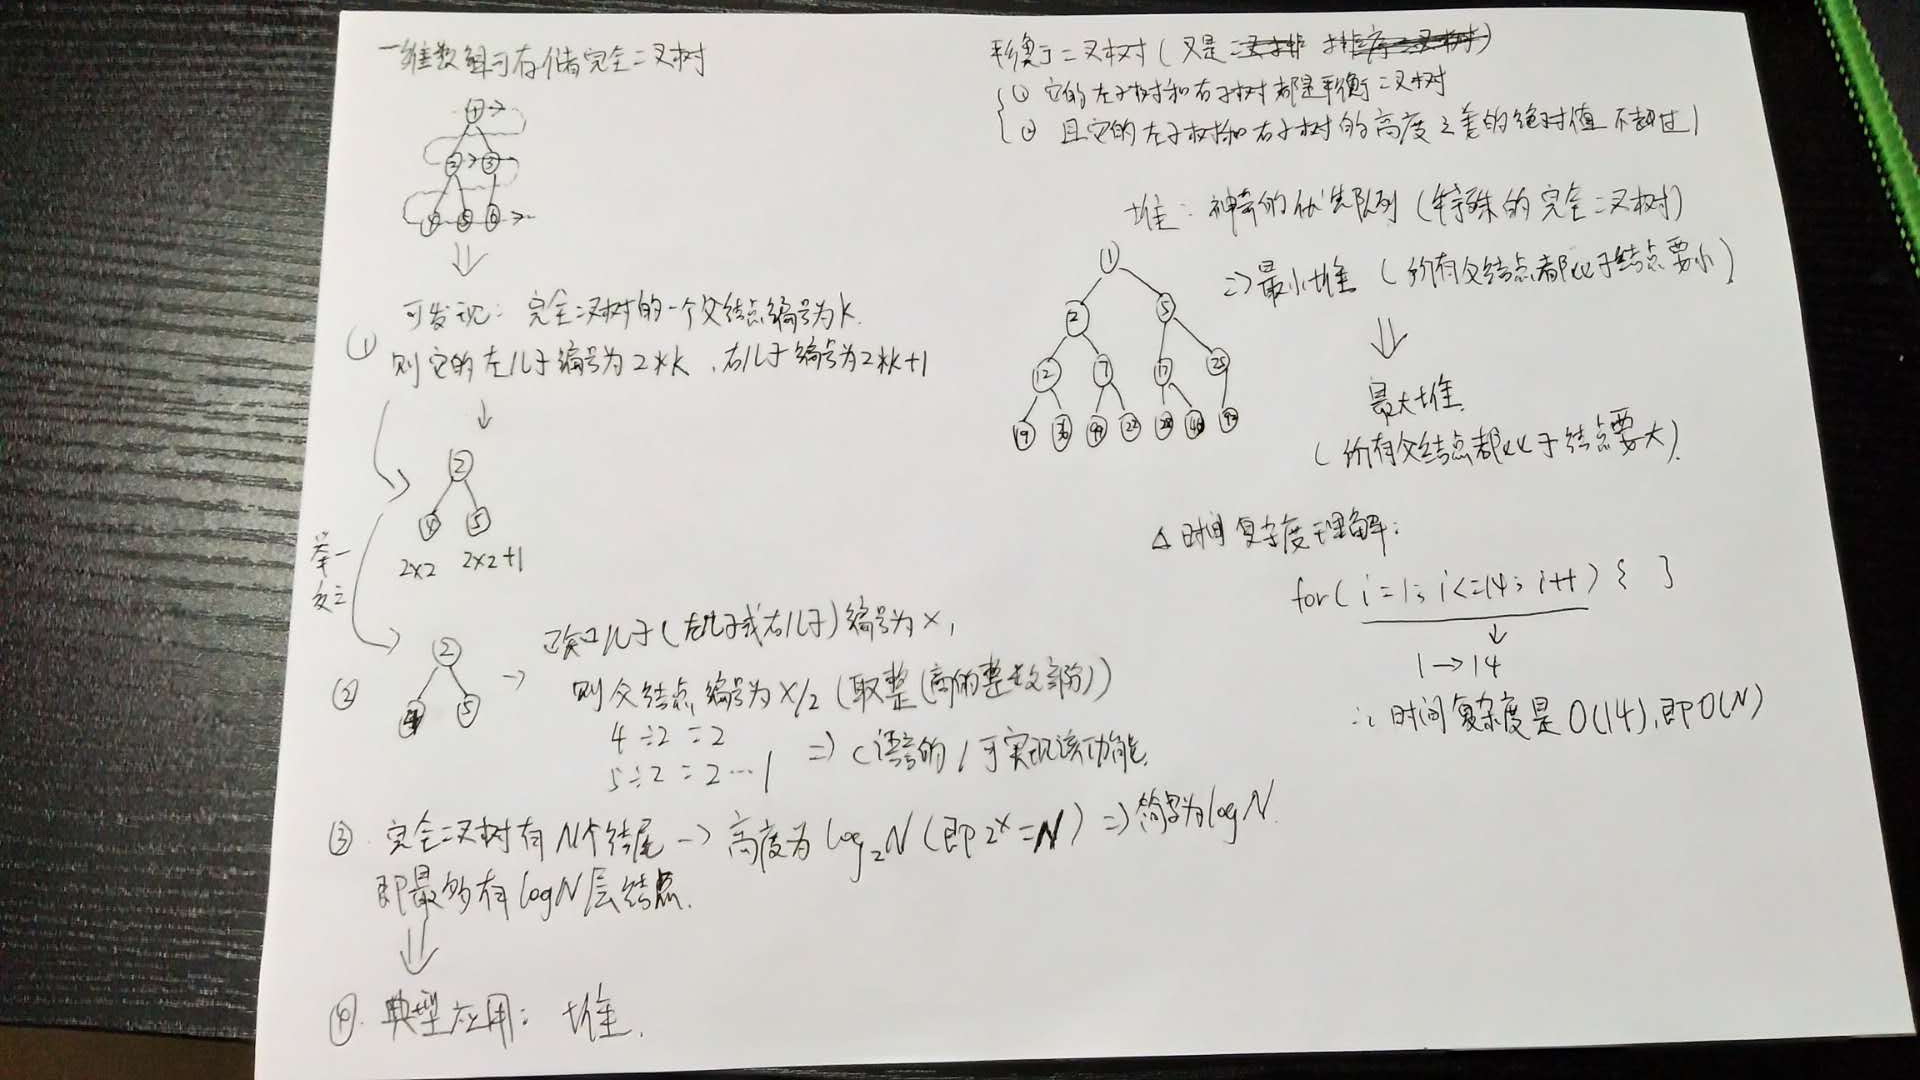 一维数组可存储完全二叉树
1
2 3
4 5 6
可发现：完全二叉树的一个父结点编号为k.
① 则它的左儿子编号为2*k，右儿子编号为2*k+1
2
4 5
2×2 2×2+1
举一
反三
② 2
4 5
→ 已知儿子(左儿子或右儿子)编号为x,
则父结点编号为x/2 (取整(商的整数部分))
4÷2=2
5÷2=2…1 ⇒ C语言的 / 可实现该功能.
③. 完全二叉树有N个结尾 → 高度为log₂N (即2ˣ=N) ⇒ 简写为logN.
即最多有logN层结点.
④. 典型应用：堆.
平衡二叉树(又是
① 它的左子树和右子树都是平衡二叉树
② 且它的左子树和右子树的高度之差的绝对值不超过1
堆：神奇的优先队列(特殊的完全二叉树)
⇒ 最小堆 (所有父结点都比子结点要小)
1
2 5
12 7 17 25
19 36 99 22 28 46 92
最大堆.
(所有父结点都比子结点要大).
△ 时间复杂度理解：
for( i=1; i<=14; i++ ) { }
1→14
∴ 时间复杂度是O(14),即O(N)